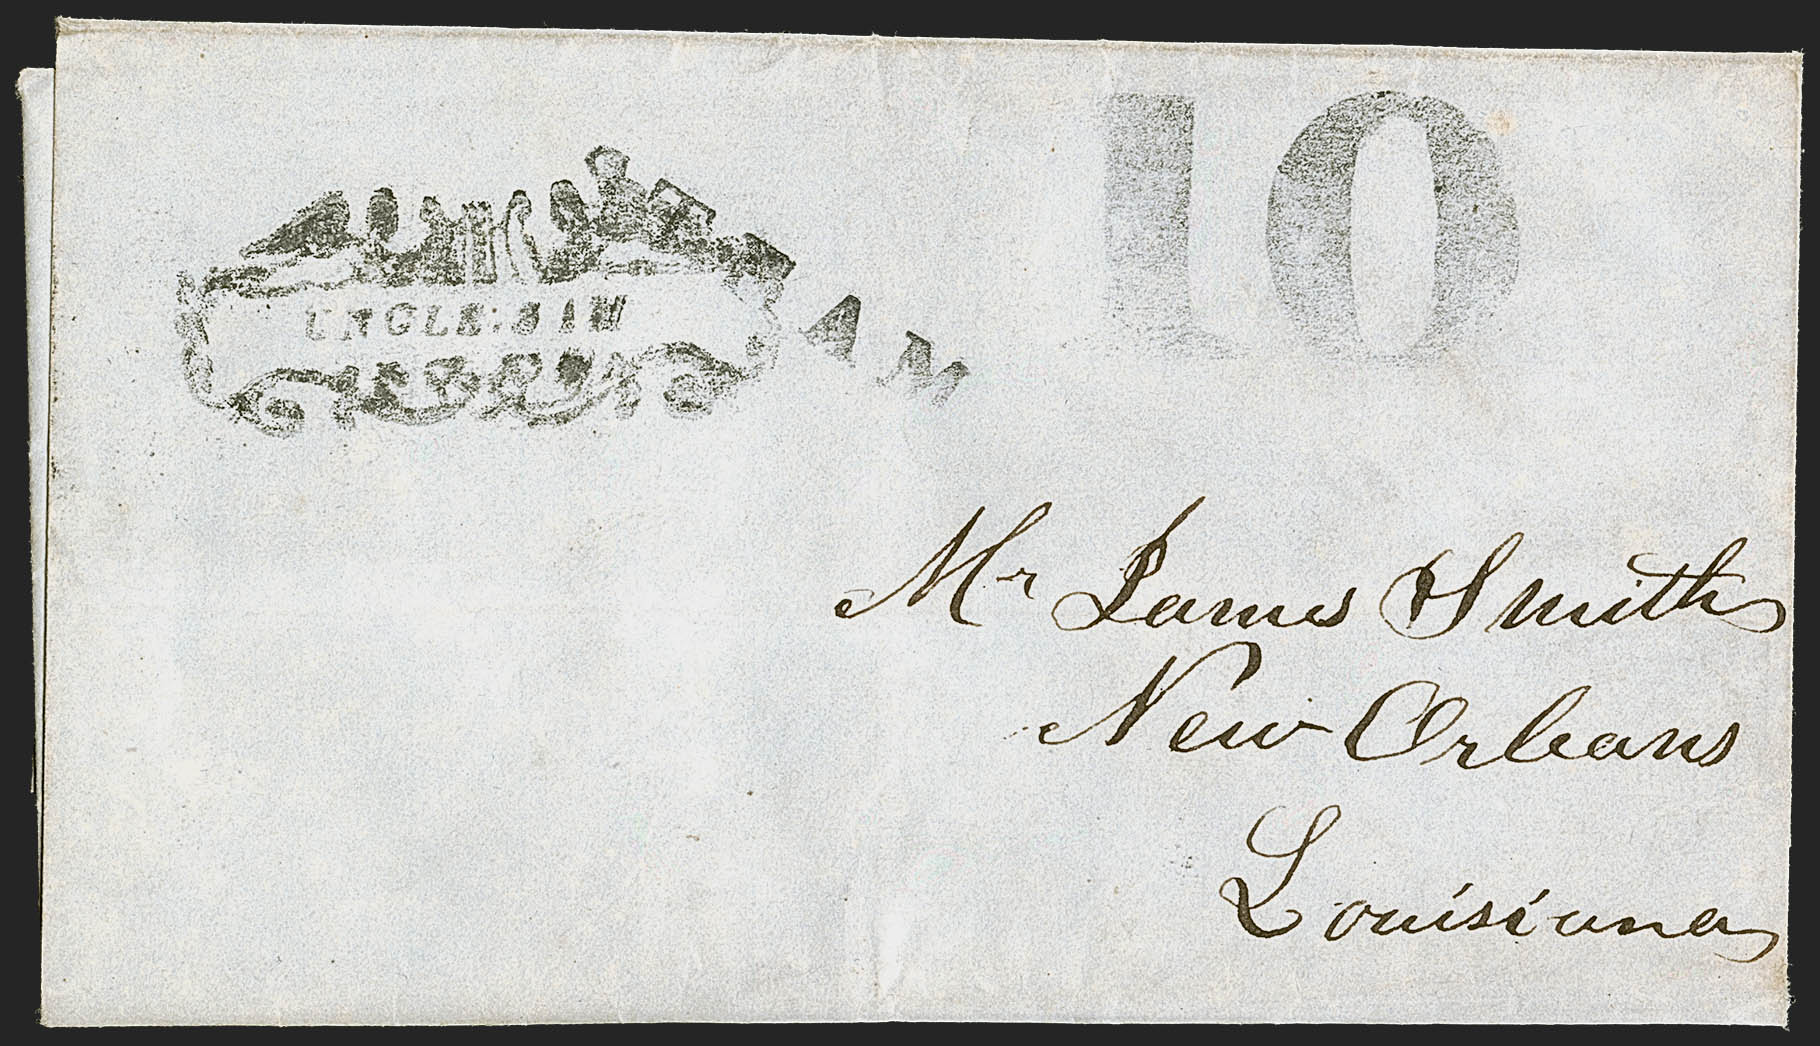 10
STEAM
UNCLE SAM
Mr James Smith
New Orleans
Louisiana